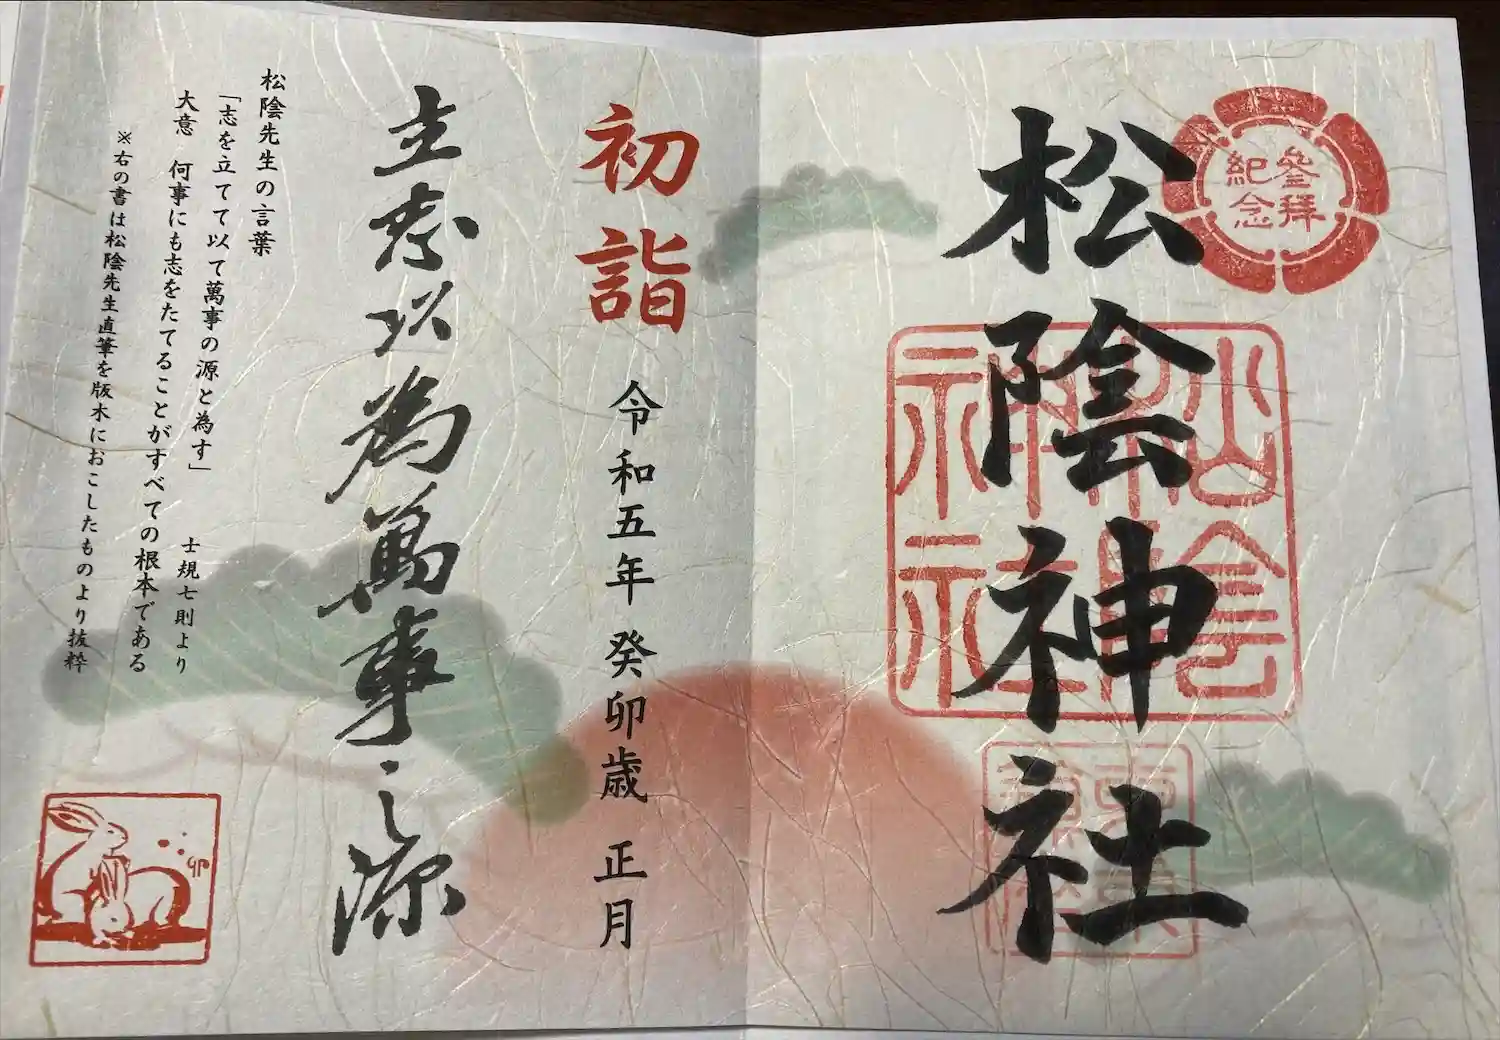 参拜
紀念
松陰神社
松陰
神社
初詣
令和五年 癸卯歳 正月
立志以為萬事之源
松陰先生の言葉
「志を立てて以て萬事の源と為す」 士規七則より
大意 何事にも志をたてることがすべての根本である
※右の書は松陰先生直筆を版木におこしたものより抜粋
卯